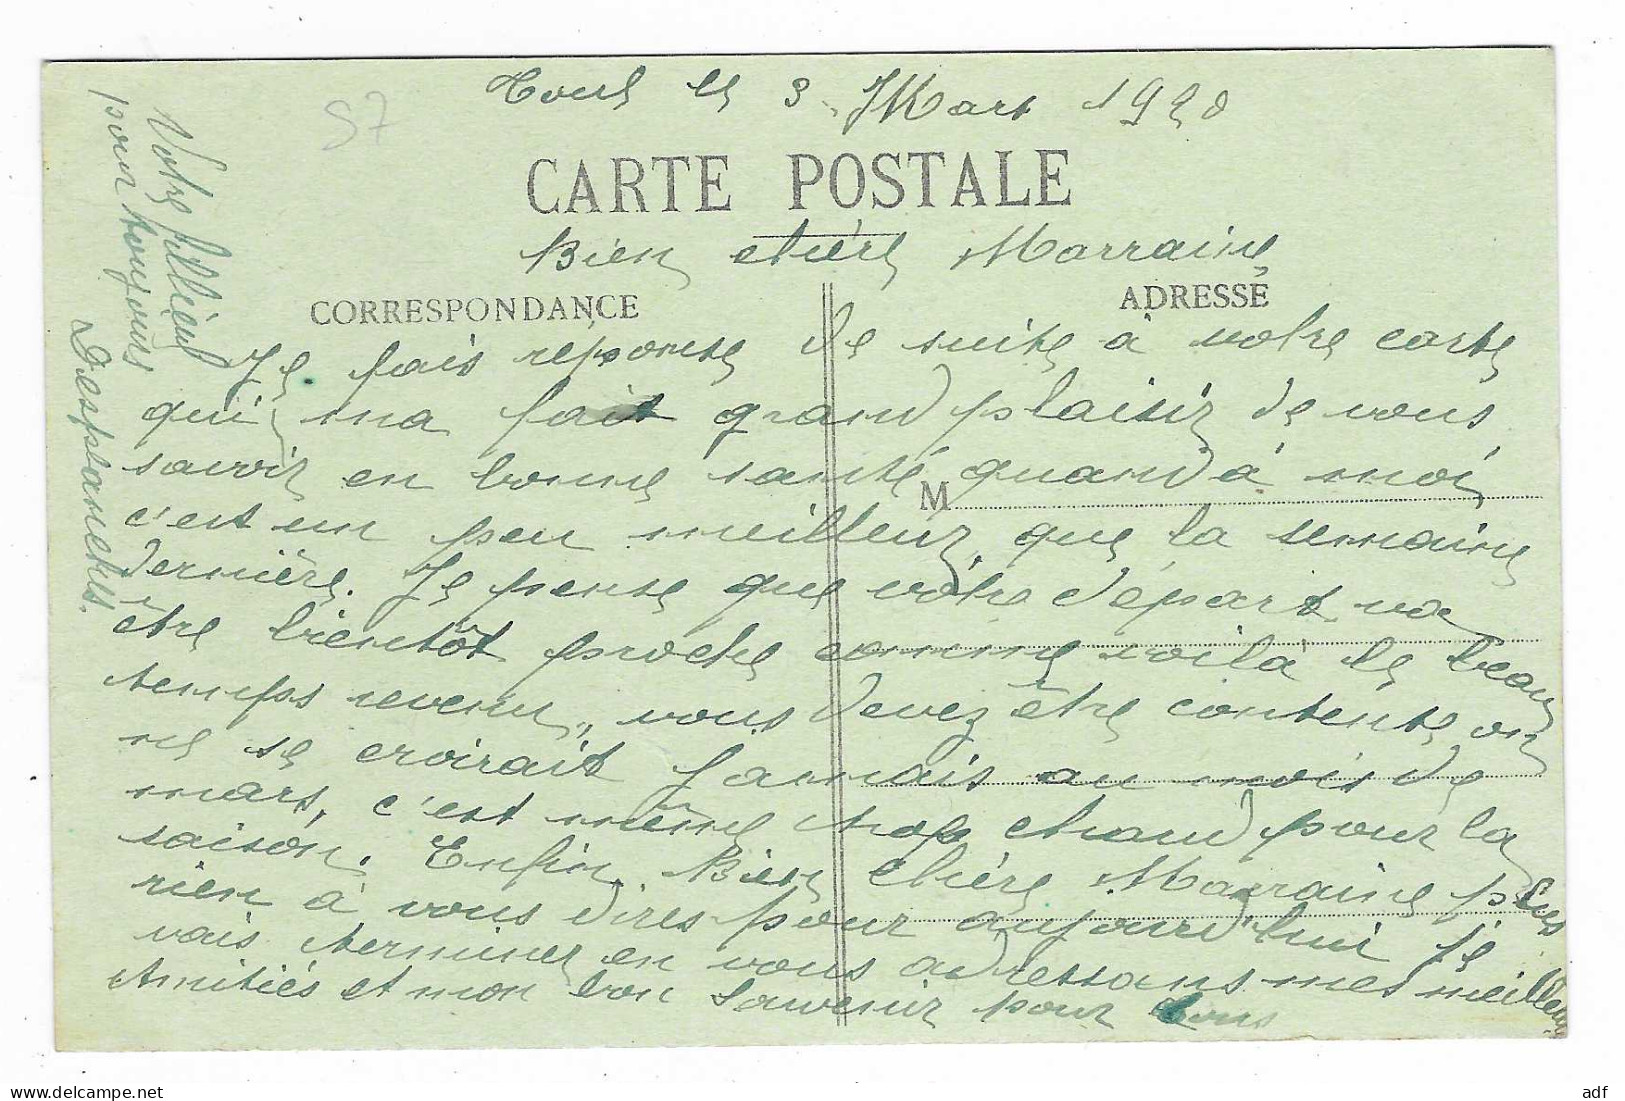 Toul le 3 Mars 1920
57
CARTE POSTALE
Bien chère Marraine
CORRESPONDANCE
ADRESSE
Je fais réponse de suite à votre carte
qui ma fait grand plaisir de vous
savoir en bonne santé quand à moi
M
c'est un peu meilleur que la semaine
dernière. Je pense que votre départ va
être bientôt proche comme voilà le beau
temps revenu, vous devez être contente on
ne se croirait jamais au mois de
mars, c'est même trop chaud pour la
saison. Enfin Bien chère Marraine plus
rien à vous dires pour aujourd'hui je
vais terminer en vous adressans mes meilleurs
Amitiés et mon bon Souvenir pour tous
Votre filleul
pour toujours
Desplanches.
adf